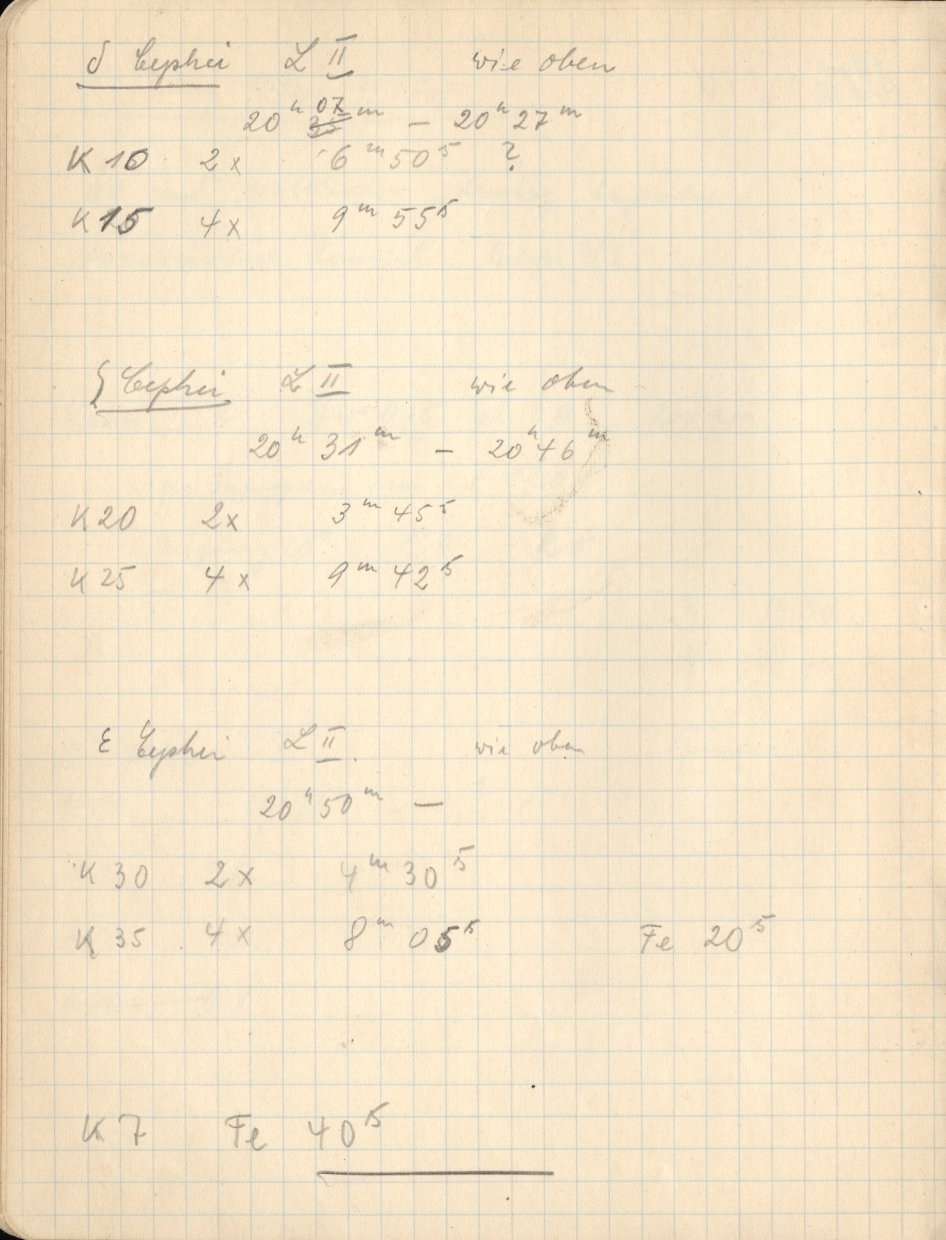 δ Cephei L II wie oben
20ʰ 07ᵐ – 20ʰ 27ᵐ
K 10 2x 6ᵐ 50ˢ ?
K 15 4x 9ᵐ 55ˢ
ζ Cephei L II wie oben
20ʰ 31ᵐ – 20ʰ 46ᵐ
K 20 2x 3ᵐ 45ˢ
K 25 4x 9ᵐ 42ˢ
ε Cephei L II wie oben
20ʰ 50ᵐ –
K 30 2x 4ᵐ 30ˢ
K 35 4x 8ᵐ 05ˢ Fe 20ˢ
K 7 Fe 40ˢ